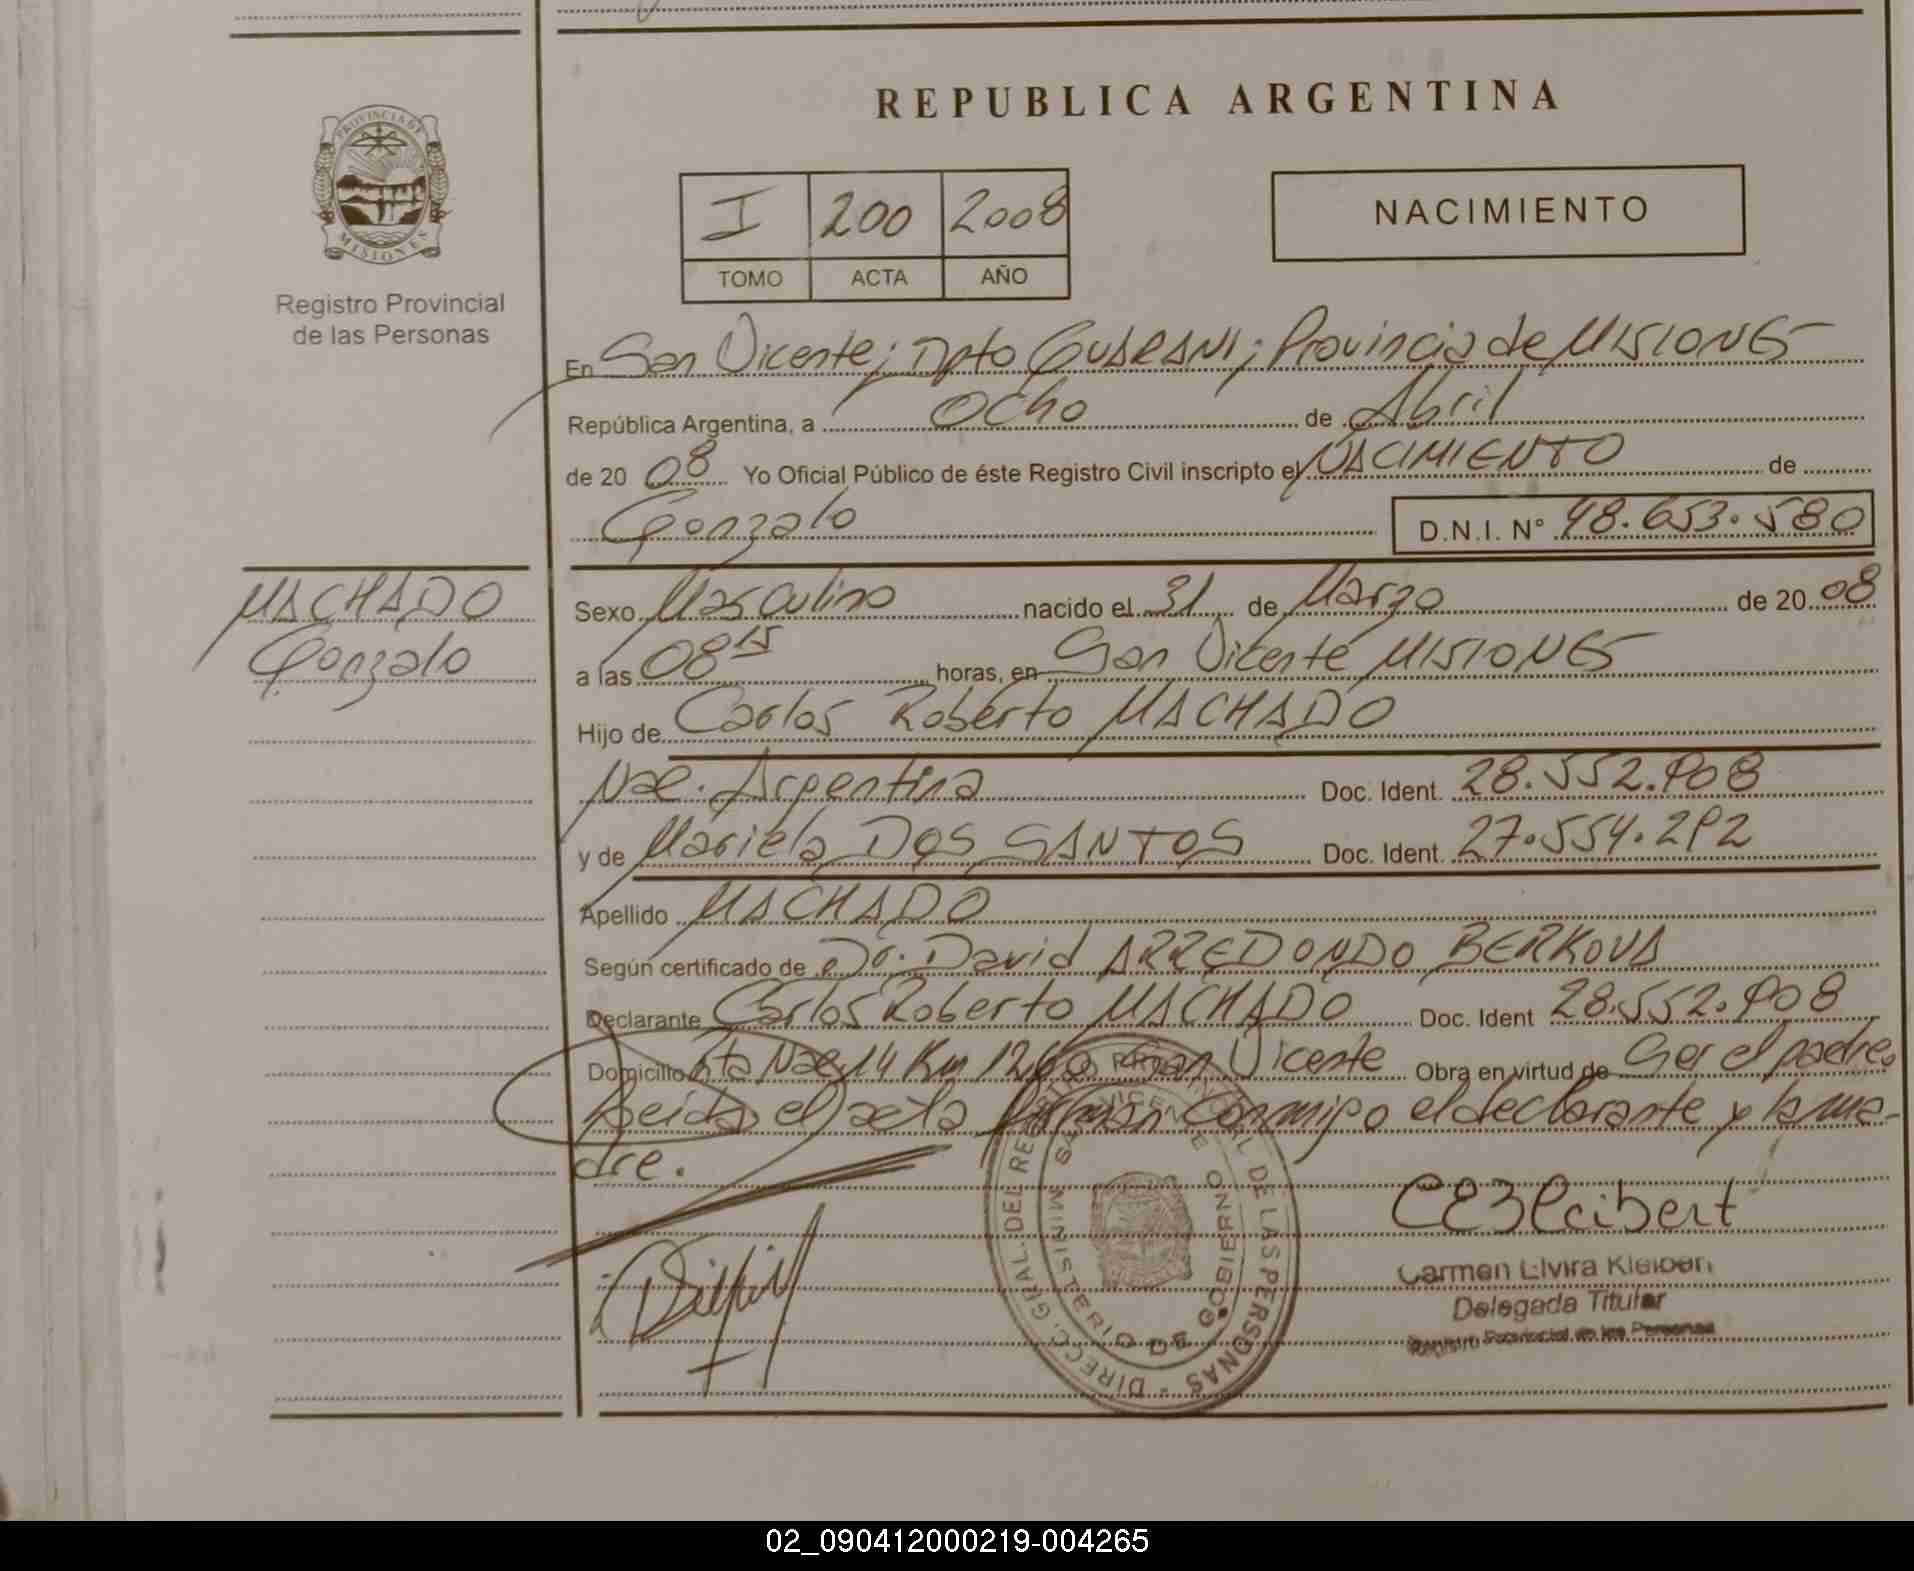 PROVINCIA DE
MISIONES
Registro Provincial
de las Personas
REPUBLICA ARGENTINA
I 200 2008
TOMO ACTA AÑO
NACIMIENTO
En San Vicente; Dpto GUARANI; Provincia de MISIONES
República Argentina, a Ocho de Abril
de 20 08 Yo Oficial Público de éste Registro Civil inscripto el NACIMIENTO de
Gonzalo D.N.I. N° 48.653.580
MACHADO
Gonzalo
Sexo Masculino nacido el 31 de Marzo de 20 08
a las 08 15 horas, en San Vicente MISIONES
Hijo de Carlos Roberto MACHADO
Nac. Argentina Doc. Ident. 28.552.908
y de Mariela DOS SANTOS Doc. Ident. 27.554.292
Apellido MACHADO
Según certificado de Dr. David ARREDONDO BERKOVA
Declarante Carlos Roberto MACHADO Doc. Ident 28.552.908
Domicilio Rta Nac 14 Km 1260 San Vicente Obra en virtud de Ser el padre
Leida el acta firman conmigo el declarante y la ma-
dre.
DIRECC. GRAL. DEL REG. PROVINCIAL DE LAS PERSONAS
SAN VICENTE
MINISTERIO DE GOBIERNO
CEKleibert
Carmen Elvira Kleibert
Delegada Titular
Registro Provincial de las Personas
02_090412000219-004265